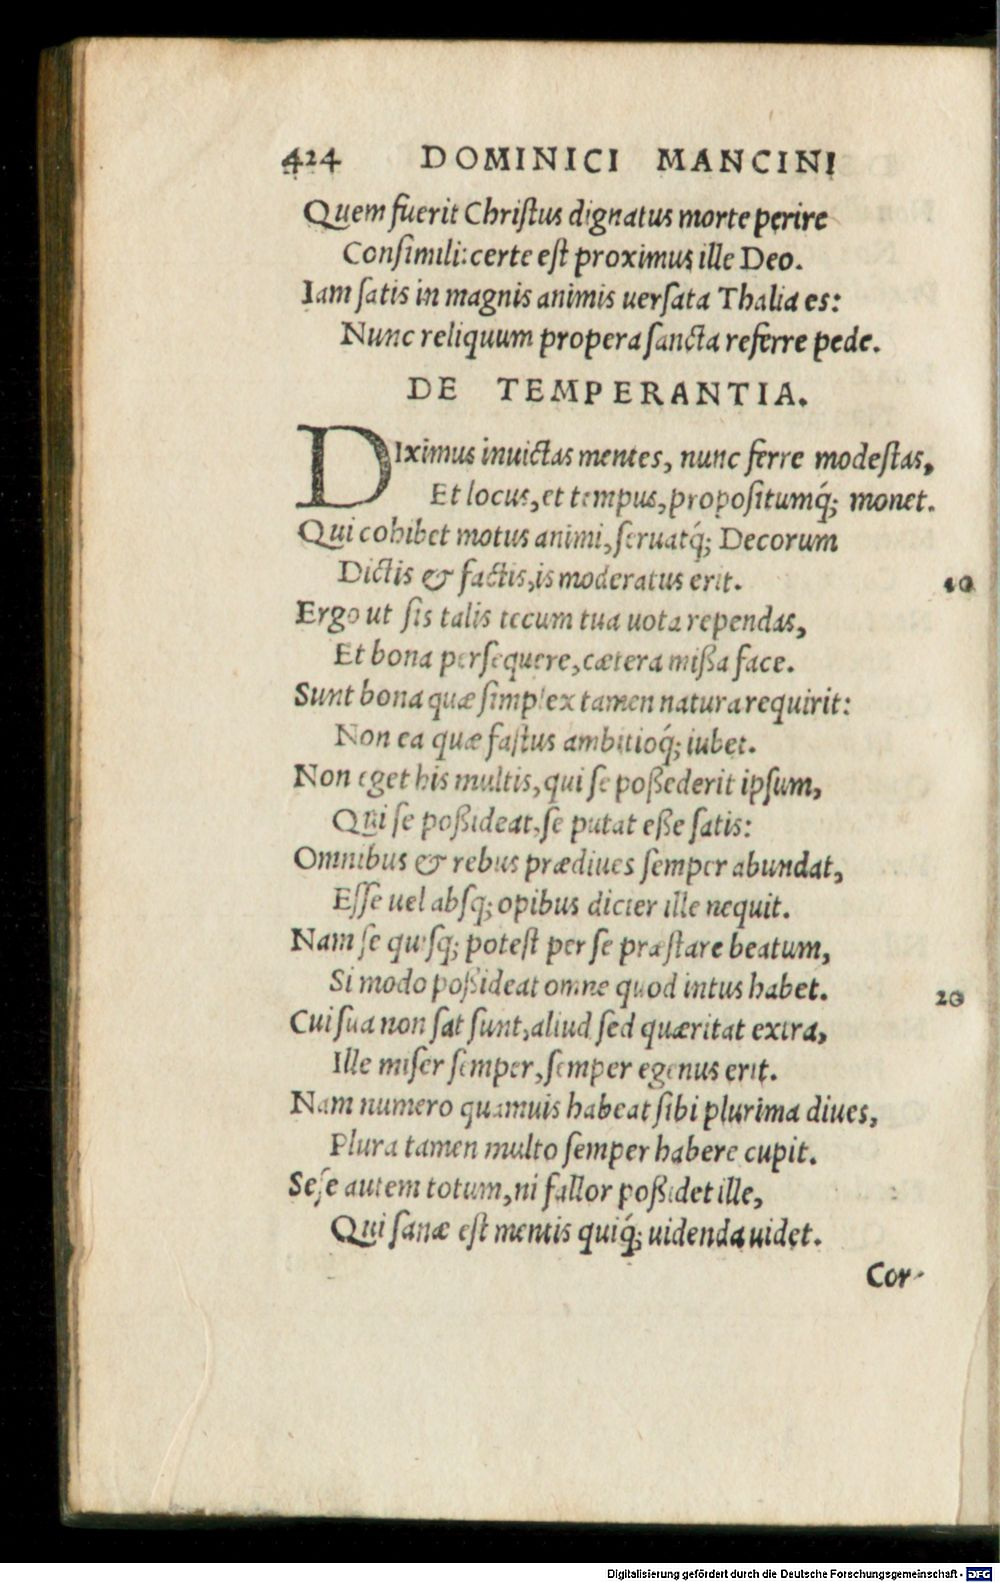 424 DOMINICI MANCINI
Quem fuerit Chriſtus dignatus morte perire
Conſimili: certe eſt proximus ille Deo.
Iam ſatis in magnis animis uerſata Thalia es:
Nunc reliquum propera ſancta referre pede.
DE TEMPERANTIA.
DIximus inuictas mentes, nunc ferre modeſtas,
Et locus, et tempus, propoſitumq́; monet.
Qui cohibet motus animi, ſeruatq́; Decorum
Dictis & factis, is moderatus erit.
10
Ergo ut ſis talis tecum tua uota rependas,
Et bona perſequere, cætera mißa face.
Sunt bona quæ ſimplex tamen natura requirit:
Non ea quæ faſtus ambitioq́; iubet.
Non eget his multis, qui ſe poßederit ipſum,
Qui ſe poßideat, ſe putat eße ſatis:
Omnibus & rebus prædiues ſemper abundat,
Eſſe uel abſq; opibus dicier ille nequit.
Nam ſe quiſq; poteſt per ſe præſtare beatum,
Si modo poßideat omne quod intus habet.
20
Cui ſua non ſat ſunt, aliud ſed quæritat extra,
Ille miſer ſemper, ſemper egenus erit.
Nam numero quamuis habeat ſibi plurima diues,
Plura tamen multo ſemper habere cupit.
Seſe autem totum, ni fallor poßidet ille,
Qui ſanæ eſt mentis quiq́; uidenda uidet.
Cor-
Digitalisierung gefördert durch die Deutsche Forschungsgemeinschaft - DFG